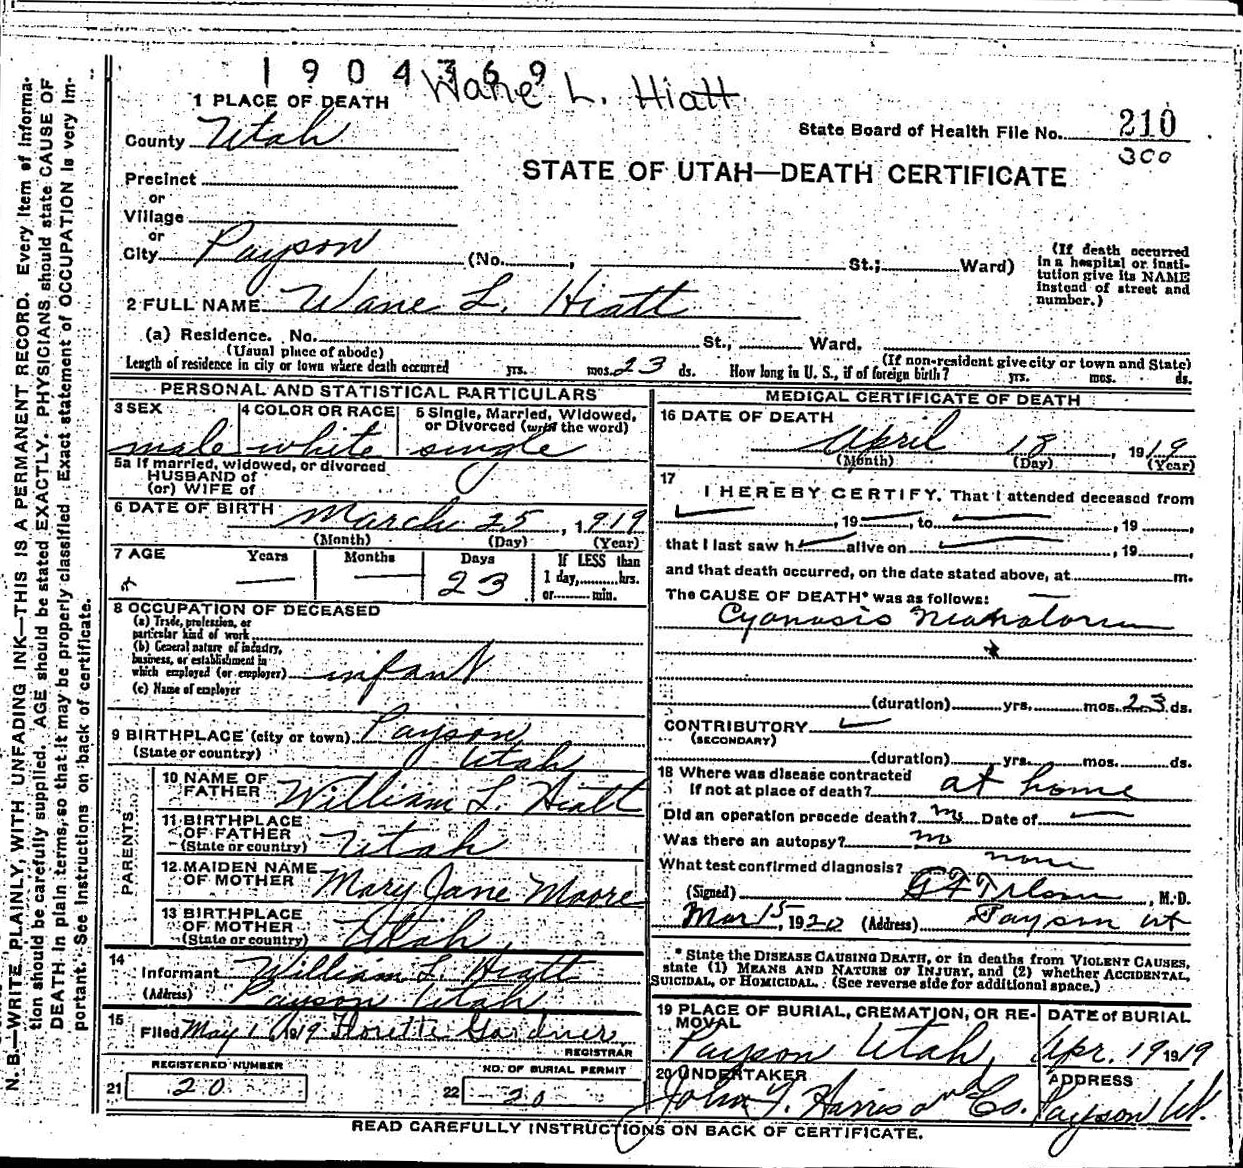 1904369
Wane L. Hiatt
1 PLACE OF DEATH
County Utah
State Board of Health File No. 210
300
STATE OF UTAH—DEATH CERTIFICATE
Precinct
or
Village
or
City Payson (No. , St.; Ward)
(If death occurred in a hospital or institution give its NAME instead of street and number.)
2 FULL NAME Wane L. Hiatt
(a) Residence. No. St., Ward.
(Usual place of abode) (If non-resident give city or town and State)
Length of residence in city or town where death occurred yrs. mos. 23 ds. How long in U. S., if of foreign birth? yrs. mos. ds.
PERSONAL AND STATISTICAL PARTICULARS
3 SEX
male
4 COLOR OR RACE
white
5 Single, Married, Widowed, or Divorced (write the word)
single
5a If married, widowed, or divorced
HUSBAND of
(or) WIFE of
6 DATE OF BIRTH March 25, 1919
(Month) (Day) (Year)
7 AGE Years Months Days If LESS than
— — 23 1 day, hrs.
or min.
8 OCCUPATION OF DECEASED
(a) Trade, profession, or
particular kind of work
(b) General nature of industry,
business, or establishment in
which employed (or employer) infant
(c) Name of employer
9 BIRTHPLACE (city or town) Payson
(State or country) Utah
PARENTS
10 NAME OF FATHER William L. Hiatt
11 BIRTHPLACE OF FATHER
(State or country) Utah
12 MAIDEN NAME OF MOTHER Mary Jane Moore
13 BIRTHPLACE OF MOTHER
(State or country) Utah
14
Informant William L. Hiatt
(Address) Payson Utah
15
Filed May 1, 1919 Florette Gardner
REGISTRAR
REGISTERED NUMBER
21 20
NO. OF BURIAL PERMIT
22 20
MEDICAL CERTIFICATE OF DEATH
16 DATE OF DEATH
April 18, 1919
(Month) (Day) (Year)
17
I HEREBY CERTIFY, That I attended deceased from
, 19 , to , 19 ,
that I last saw h alive on , 19 ,
and that death occurred, on the date stated above, at m.
The CAUSE OF DEATH* was as follows:
Cyanosis Neonatorum
(duration) yrs. mos. 23 ds.
CONTRIBUTORY
(SECONDARY)
(duration) yrs. mos. ds.
18 Where was disease contracted
If not at place of death? at home
Did an operation precede death? no Date of
Was there an autopsy? no
What test confirmed diagnosis? none
(Signed) , M.D.
Mar 15, 1920 (Address) Payson Ut
* State the DISEASE CAUSING DEATH, or in deaths from VIOLENT CAUSES,
state (1) MEANS AND NATURE OF INJURY, and (2) whether ACCIDENTAL,
SUICIDAL, or HOMICIDAL. (See reverse side for additional space.)
19 PLACE OF BURIAL, CREMATION, OR REMOVAL
Payson Utah,
DATE of BURIAL
Apr. 19 1919
20 UNDERTAKER
John Y. Harrison Co.
ADDRESS
Payson Ut.
READ CAREFULLY INSTRUCTIONS ON BACK OF CERTIFICATE.
N. B.—WRITE PLAINLY, WITH UNFADING INK—THIS IS A PERMANENT RECORD. Every item of informa-
tion should be carefully supplied. AGE should be stated EXACTLY. PHYSICIANS should state CAUSE OF
DEATH in plain terms, so that it may be properly classified. Exact statement of OCCUPATION is very im-
portant. See instructions on back of certificate.